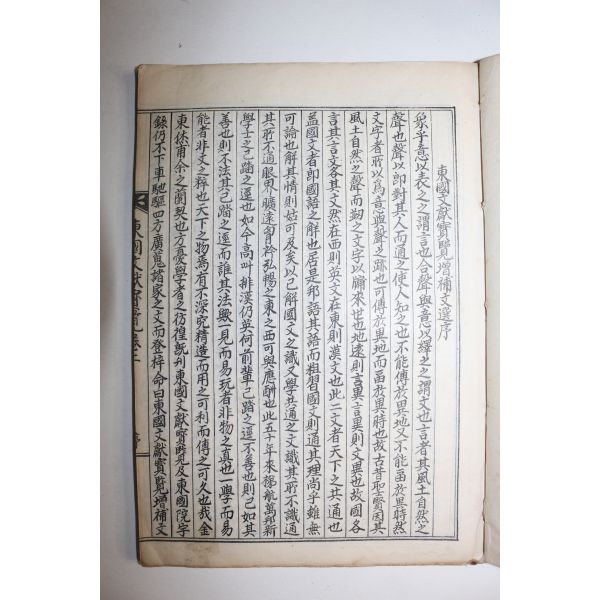 東國文獻寶覽增補文選序
象乎意以表之之謂言也合聲與意以繹之之謂文也言者其風土自然之
聲也聲以即對其人而通之使人知之也不能傳於異地又不能留於異時然
文字者所以爲意與聲之跡也可傳於異地而留於異時也故古昔聖賢因其
風土自然之聲而制之文字以嘯來世也地遠則言異言異則文異也故國各
言其言文各其文然在西則英文在東則漢文也此二文者天下之共通也
蓋國文者即國語之解也居是邦語其語而粗習國文則通其理尚乎雖無
可論也解其情則姑可及矣以己解國文之識又學共通之文識其所不識通
其所不通眼界曠遠胷衿弘暢之東之西可與應酬也此五十年來梯航萬邦新
學士之已踏之逕也如今高叫排漢仍英何前輩已踏之逕不善也則已如其
善也則不法其已踏之逕而誰其法歟一見而易玩者非物之真也一學而易
能者非文之粹也天下之物焉有不深究精造而用之可利而傳之可久也哉金
東 甫余之蘭契也方憂學者之彷徨旣刊東國文獻寶覽及東國院宇
錄仍不下車馳驅四方廣蒐諸家之文而登梓命曰東國文獻寶覽增補文
東國文獻寶覽卷之
序